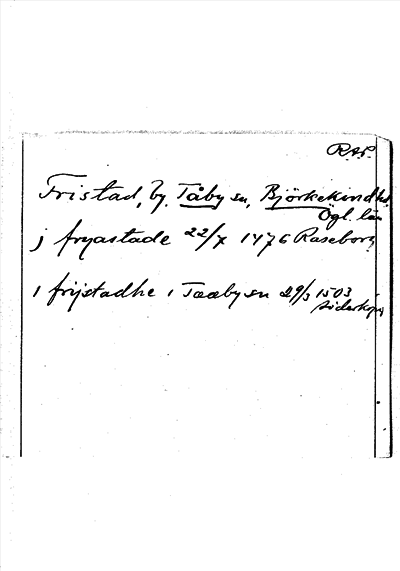 RAP.
Fristad, by. Tåby sn, Björkekinds hd,
Ögl. län
j fryastade 22/7 1476 Raseborg
i frijstadhe i Taabysn 29/3 1503
Söderköping